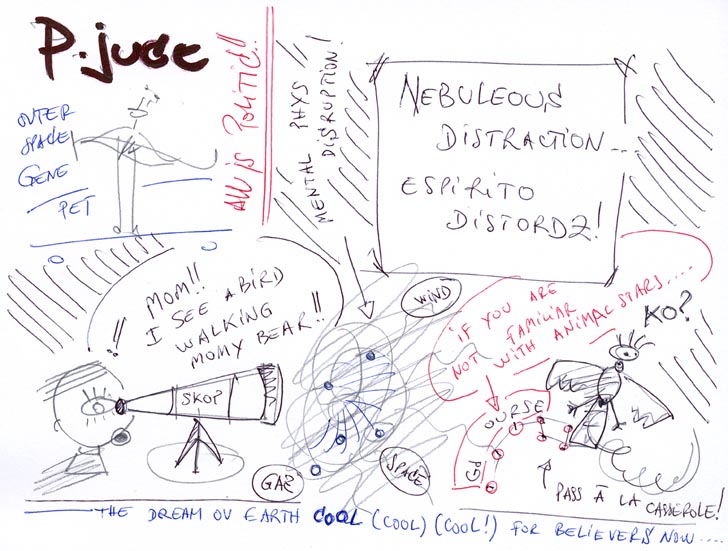 P. jude
OUTER
SPACE
GENE
PET
All is Politic!!
MENTAL PHYS //
DISRUPTION!
NEBULEOUS
DISTRACTION...
ESPIRITO
DISTORDZ!
MOM!!
I SEE A BIRD
WALKING
MOMY BEAR!!
!!
SKOP
GAZ
WIND
SPACE
IF YOU ARE
NOT FAMILIAR
WITH ANIMAL STARS.....
KO?
OURSE
Gd
PASS À LA CASSEROLE!
THE DREAM OV EARTH COOL (COOL) (COOL!) FOR BELIEVERS NOW....